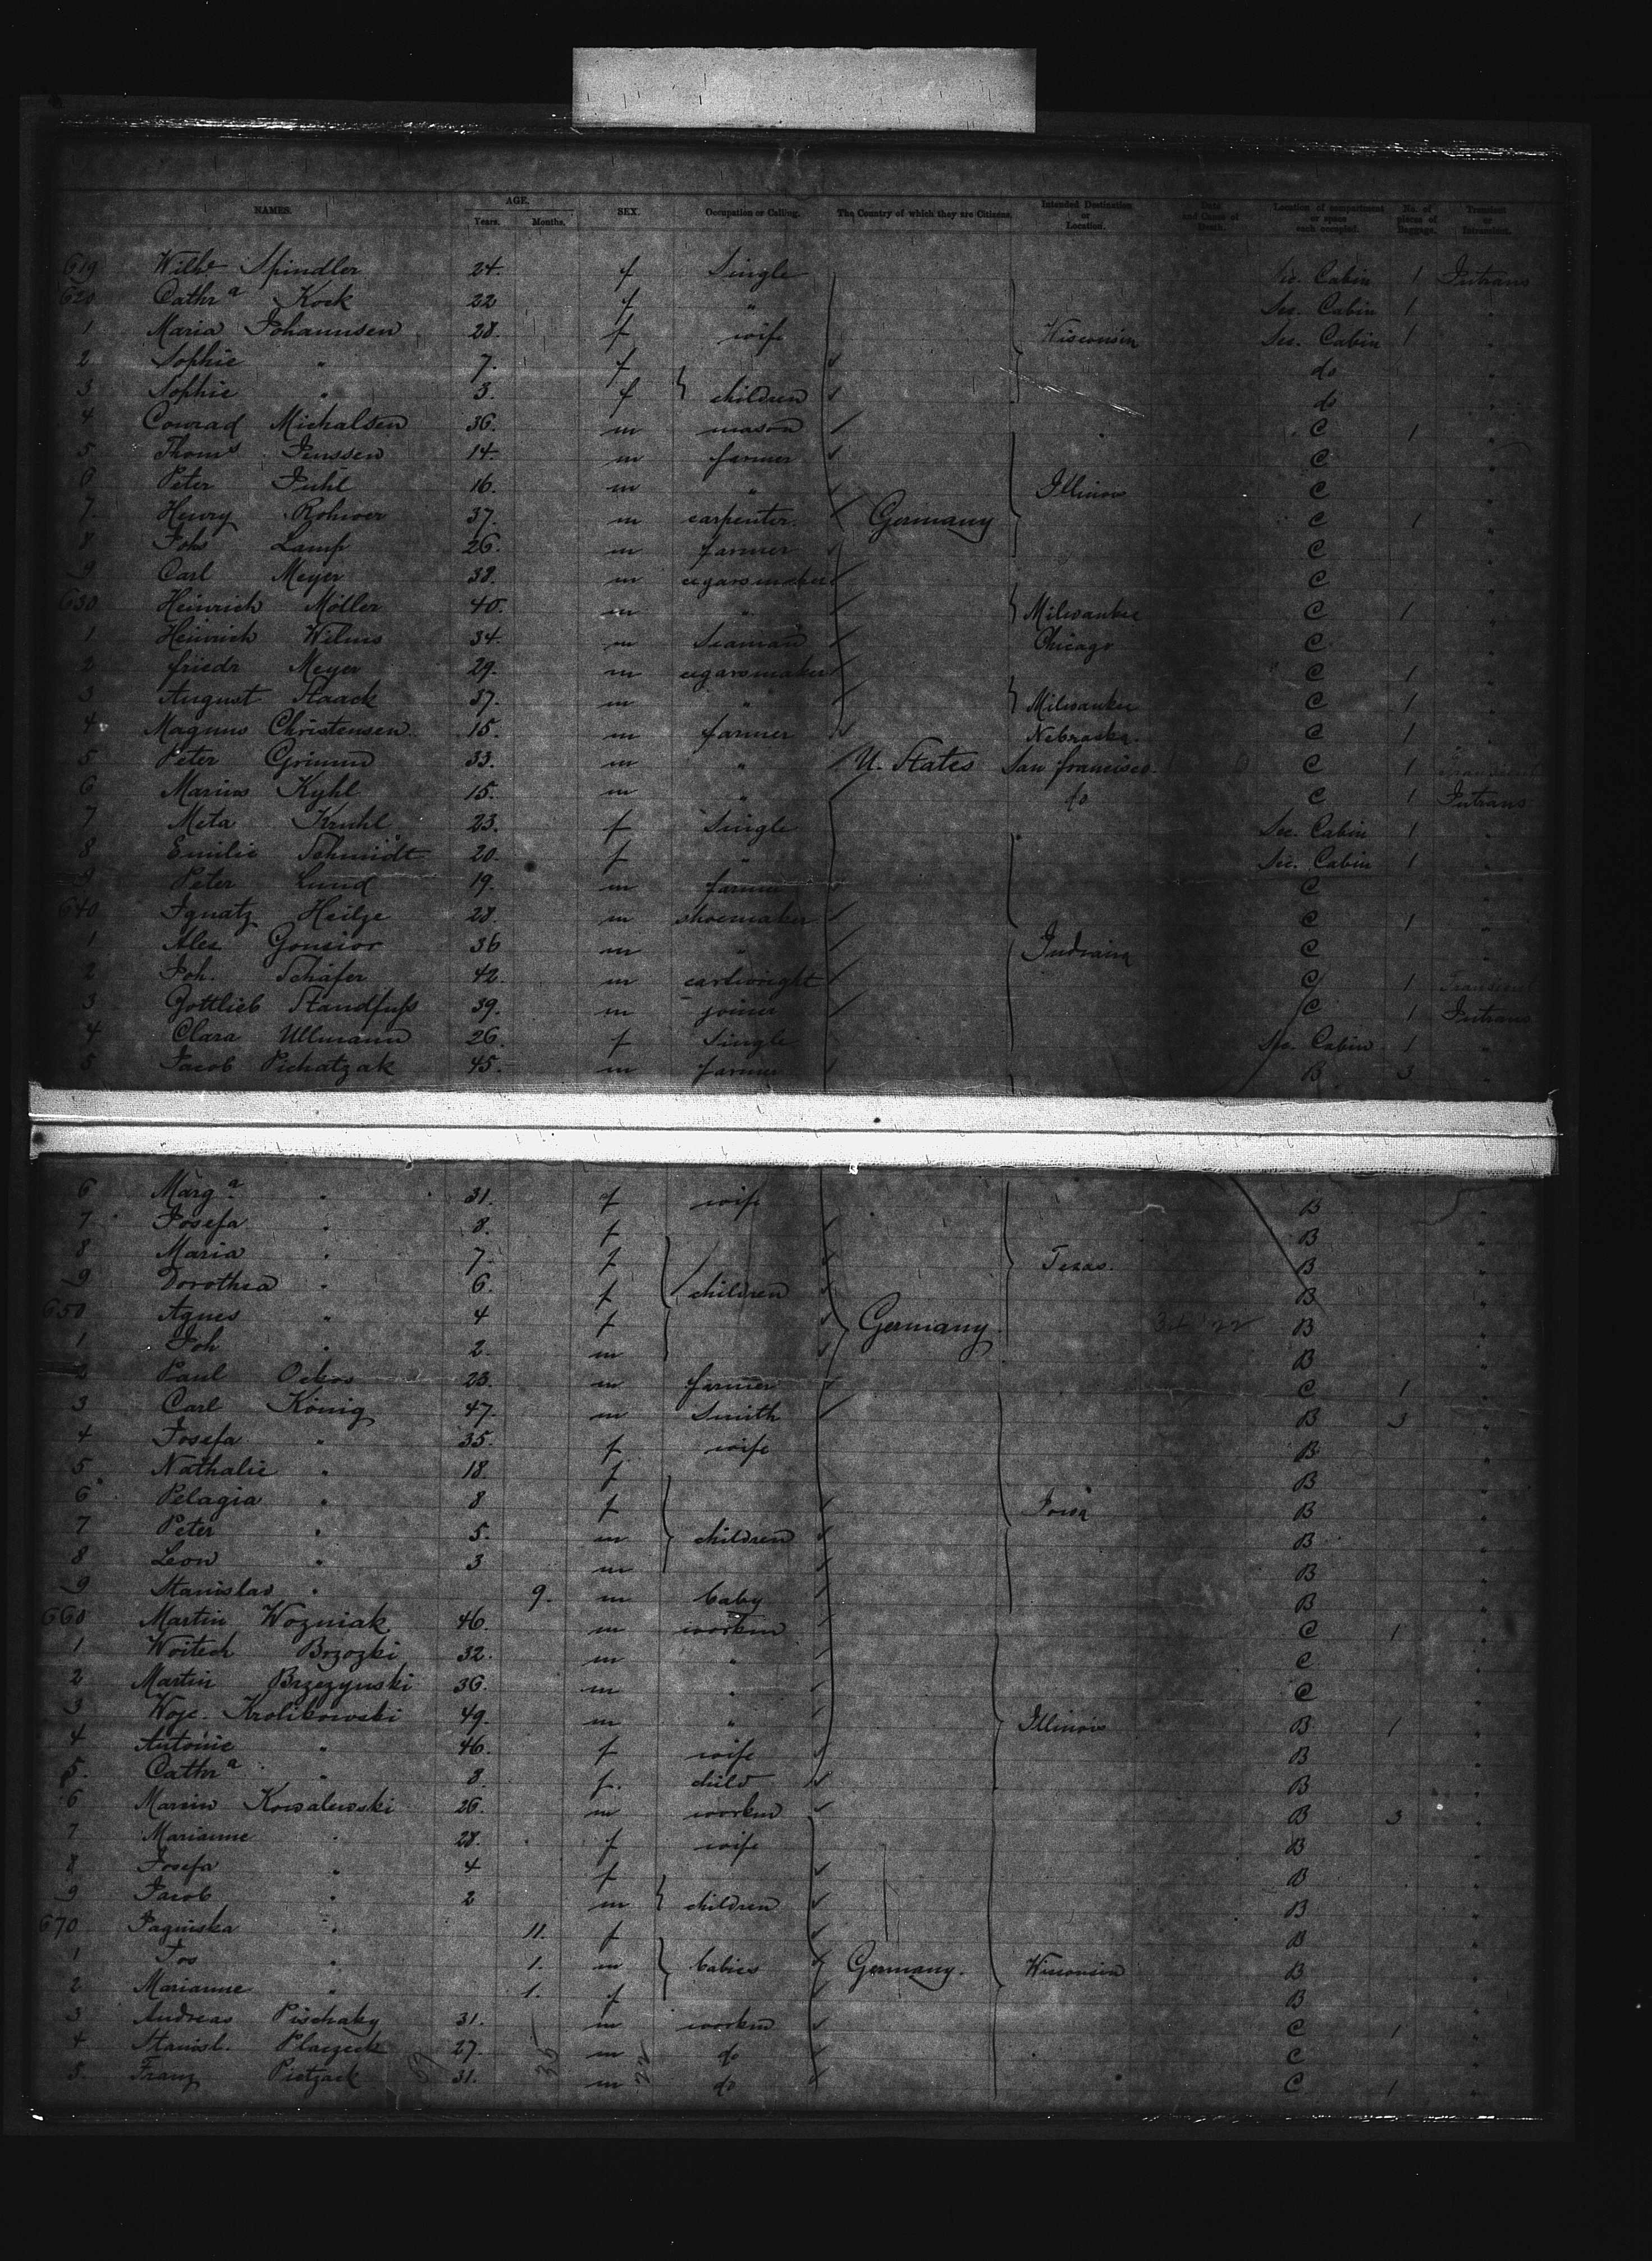 NAMES. AGE. Years. Months. SEX. Occupation or Calling. The Country of which they are Citizens. Intended Destination or Location. Date and Cause of Death. Location of compartment or space each occupied. No. of pieces of Baggage. Transient or Intransient.
619 Wilhe Spindler 24. f Single Sec. Cabin 1 Intrans
620 Cathra Kock 22 f " Sec. Cabin 1 "
1 Maria Johannsen 28. f wife Wisconsin Sec. Cabin 1 "
2 Sophie " 7. f do "
3 Sophie " 3. f children do "
4 Conrad Michalsen 36. m mason C 1 "
5 Thoms Jenssen 14. m farmer C "
6 Peter Juhl 16. m " Illinois C "
7 Henry Rohwer 37. m carpenter. Germany C 1 "
8 Johs Lamp 26. m farmer C "
9 Carl Meyer 38. m cigarsmaker C "
630 Heinrich Möller 40. m " Milwaukee C 1 "
1 Heinrich Wilms 34. m Seaman Chicago C "
2 friedr Meyer 29. m cigarsmaker C 1 "
3 August Staack 37. m " Milwaukee C 1 "
4 Magnus Christensen 15. m farmer Nebraska. C 1 "
5 Peter Grimm 33. m " U. States San francisco. C 1 Transient
6 Marius Kyhl 15. m " do C 1 Intrans
7 Meta Kruhl 23. f Single Sec. Cabin 1 "
8 Emilie Schmidt 20. f " Sec. Cabin 1 "
9 Peter Lund 19. m farmer C "
640 Ignatz Heilze 28. m shoemaker C 1 "
1 Alex Gonsior 36 m " Indiana C "
2 Joh. Schäfer 42. m cartwright C 1 Transient
3 Gottlieb Standfuss 39. m joiner C 1 Intrans
4 Clara Ullmann 26. f Single Sec. Cabin 1 "
5 Jacob Pichatzak 45. m farmer B 3 "
6 Marga " 31. f wife B "
7 Josefa " 8. f B "
8 Maria " 7. f Texas. B "
9 Dorothea " 6. f children B "
650 Agnes " 4 f Germany B "
1 Joh " 2. m B "
2 Paul 23. m farmer C 1 "
3 Carl König 47. m Smith B 3 "
4 Josefa " 35. f wife B "
5 Nathalie " 18 f B "
6 Pelagia " 8 f Iowa B "
7 Peter " 5. m children B "
8 Leon " 3 m B "
9 Stanislav " 9. m baby B "
660 Martin Wozniak 46. m workm C 1 "
1 Woitech Brzozki 32. m " C "
2 Martin Brzezynski 36. m " C "
3 Wojc. Krolikowski 49. m " Illinois B 1 "
4 Antonie " 46. f wife B "
5. Cathra " 3. f. child B "
6 Marcin Kowalewski 26. m workm B 3 "
7 Marianne " 28. f wife B "
8 Josefa " 4 f B "
9 Jacob " 2 m children B "
670 " 11. f B "
1 Jos " 1. m babies Germany. Wisconsin B "
2 Marianne " 1. f B "
3 Andreas Pischaky 31. m workm C 1 "
4 Stanisl. Placzeck 27. m do C "
5. Franz Pietzack 31. m do C 1 "